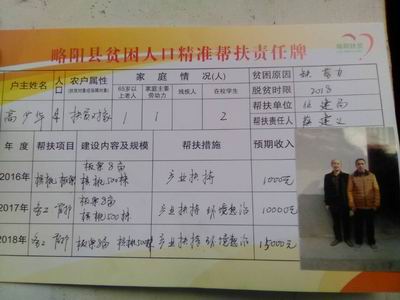 略阳县贫困人口精准帮扶责任牌
略阳扶贫
户主姓名 人口 农户属性 家庭情况(人) 贫困原因 缺劳力
(扶贫对象或低保对象) 65岁以上老人 家庭主要劳动力 残疾人 在校学生 脱贫时限 2018
帮扶单位 住建局
高少华 4 扶贫对象 1 1 2 帮扶责任人
年度 帮扶项目 建设内容及规模 帮扶措施 预期收入
2016年 核桃 板栗 板栗8亩 核桃500株 产业扶持 1000元
2017年 务工 板栗8亩 核桃500株 产业扶持 环境整治 10000元
2018年 务工 板栗8亩 核桃500株 产业扶持 环境整治 15000元